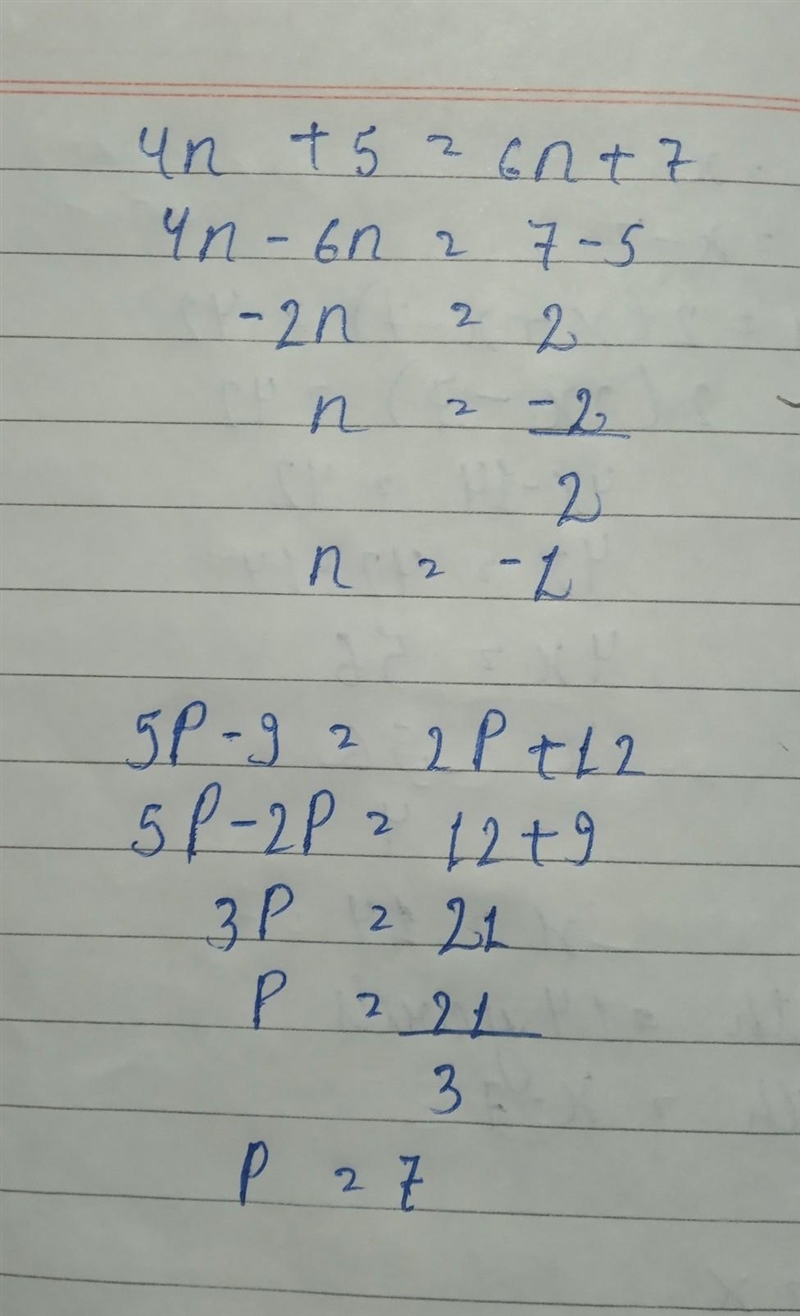 4n + 5 = 6n + 7
4n - 6n = 7 - 5
-2n = 2
n = -2
2
n = -1
5P - 9 = 2P + 12
5P - 2P = 12 + 9
3P = 21
P = 21
3
P = 7